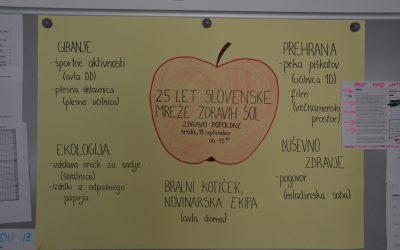 GIBANJE
- športne aktivnosti
(avla DD)
- plesna delavnica
(plesna učilnica)
EKOLOGIJA
- izdelava vrečk za sadje
(šivalnice)
- izdelki iz odpadnega
papirja
25 LET SLOVENSKE
MREŽE ZDRAVIH ŠOL
ZDRAVO POPOLDNE
sreda, september
ob 15
BRALNI KOTIČEK,
NOVINARSKA EKIPA
(avla doma)
PREHRANA
- peka piškotov
(učilnica 1D)
- film
(večnamenski
prostor)
DUŠEVNO
ZDRAVJE
- pogovor
(mladinska soba)